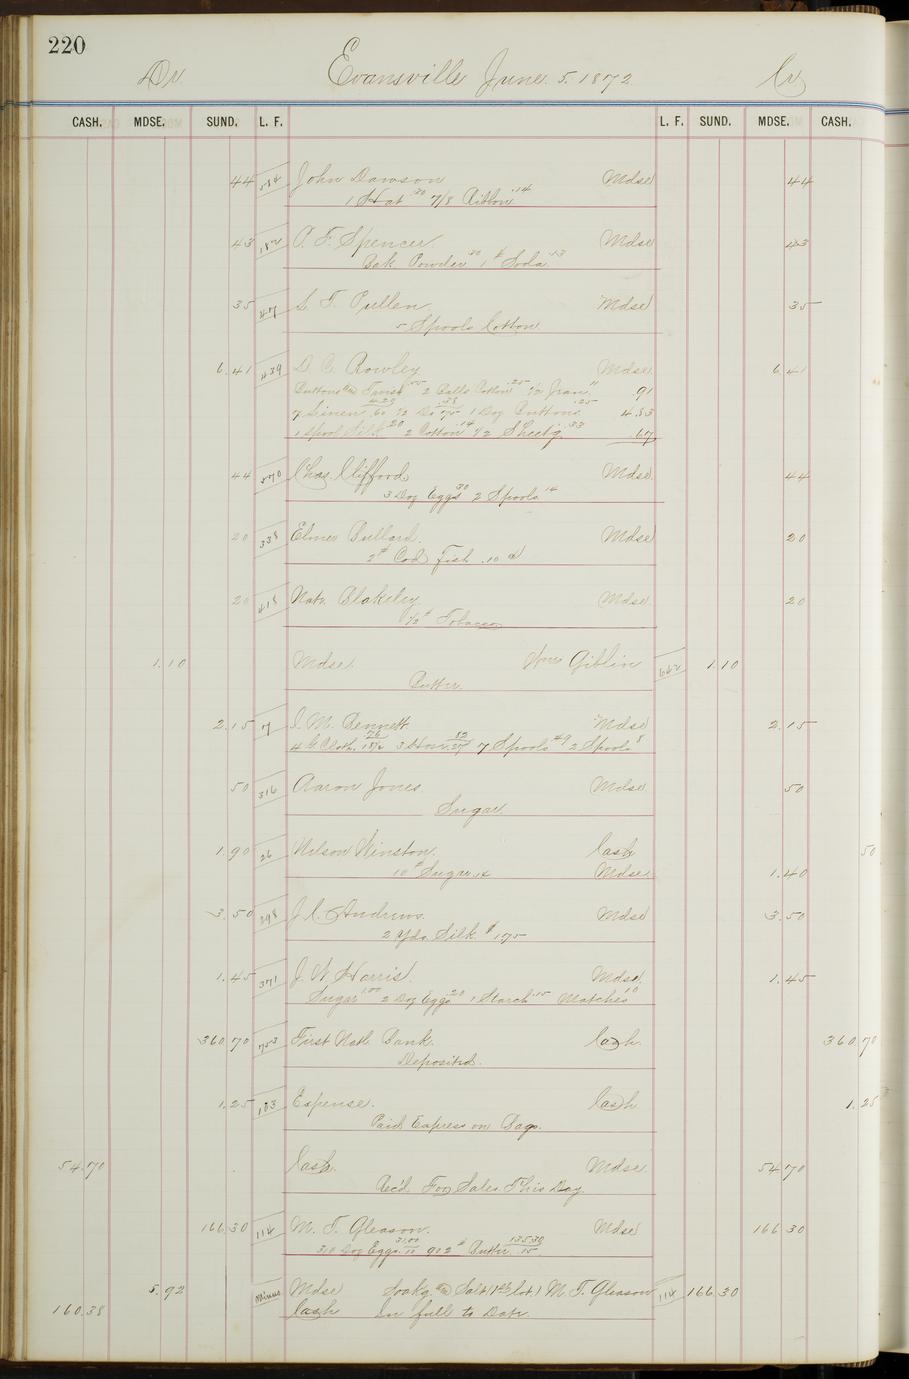 220
Dr Evansville June. 5. 1872 Cr
CASH. MDSE. SUND. L. F. L. F. SUND. MDSE. CASH.
44 584 John Dawson Mdse 44
1 Hat .30 7/8 Ribbon .14
43 182 P. F. Spencer Mdse 43
Bak. Powder .30 1# Soda .13
35 47 L. T. Pullen Mdse 35
5 Spools Cotton
6.41 439 D. C. Rowley Mdse 6.41
Buttons & Twist .55 2 Balls Cotton .25 1/2 Jean 11 .91
7 Linen .60 4.20 1/2 Do .75 .38 1 Doz Buttons .25 4.83
1 Spool Silk .20 2 Cotton .14 1/2 Sheetg .33 .67
44 570 Chas. Clifford Mdse 44
3 Doz Eggs .30 2 Spools .14
20 338 Elmer Bullard. Mdse 20
2# Cod Fish .10 d
20 418 Nate Blakeley Mdse 20
1/2# Tobacco
1.10 Mdse. Wm Giblin 642 1.10
Butter.
2.15 7 I. M. Bennett Mdse 2.15
7 Spools .49 2 Spools 8
50 316 Aaron Jones Mdse 50
Sugar.
1.90 26 Nelson Winston. Cash 50
10# Sugar .14 Mdse 1.40
3.50 298 J. C. Andrews. Mdse 3.50
2 Yds. Silk $1.75
1.45 371 J. W. Harris. Mdse. 1.45
Sugar 1.00 2 Doz Eggs .20 1 Starch .15 Matches .10
360.70 753 First Natl. Bank. Cash 360.70
Deposited.
1.25 103 Expense. Cash 1.25
Paid Express on Bags.
54.70 Cash. Mdse. 54.70
Rec'd. For Sales This Day.
166.30 114 M. T. Gleason. Mdse 166.30
310 Doz Eggs .10 31.00 902# Butter .15 135.30
5.92 Minus Mdse Soakg & Salt (1st lot) M. T. Gleason 114 166.30
160.38 Cash In full to Date.